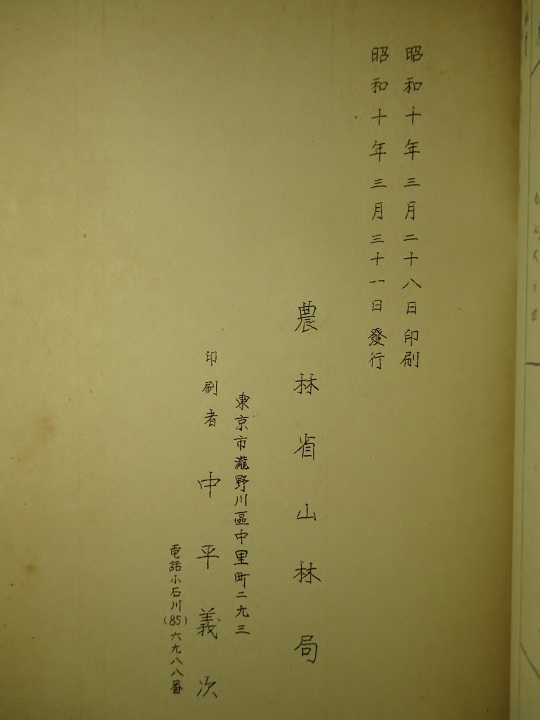 昭和十年三月二十八日印刷
昭和十年三月三十一日發行
農林省山林局
東京市瀧野川區中里町二九三
印刷者 中平義次
電話小石川(85)六九八八番